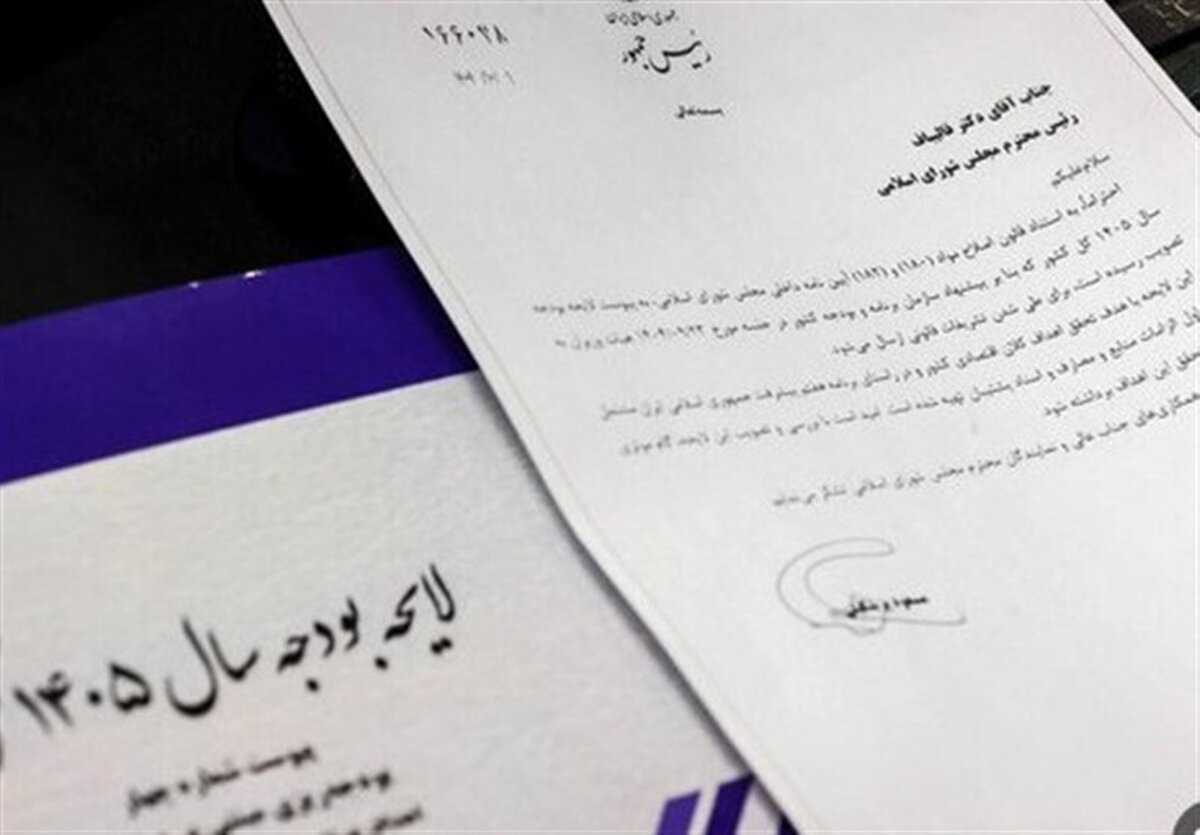 جمهوری اسلامی ایران
رئیس جمهور
۱۶۶۰۲۸
بسمه‌تعالی
جناب آقای دکتر قالیباف
رئیس محترم مجلس شورای اسلامی
سلام‌علیکم
احتراماً به استناد قانون اصلاح مواد (۱۸۰) و (۱۸۲) آیین نامه داخلی مجلس شورای اسلامی، به پیوست لایحه بودجه
سال ۱۴۰۵ کل کشور که بنا بر پیشنهاد سازمان برنامه و بودجه کشور در جلسه مورخ هیات وزیران به
تصویب رسیده است، برای طی شدن تشریفات قانونی ارسال می‌شود.
این لایحه با هدف تحقق اهداف کلان اقتصادی کشور و در راستای برنامه هفتم پیشرفت جمهوری اسلامی ایران مشتمل
الزامات منابع و مصارف و اسناد پشتیبان تهیه شده است. امید است با بررسی و تصویب این لایحه، گام موثری
تحقق این اهداف برداشته شود
همکاری‌های جناب عالی و نمایندگان محترم مجلس شورای اسلامی تشکر می‌نماید
مسعود پزشکیان
لایحه بودجه سال ۱۴۰۵
پیوست شماره چهار